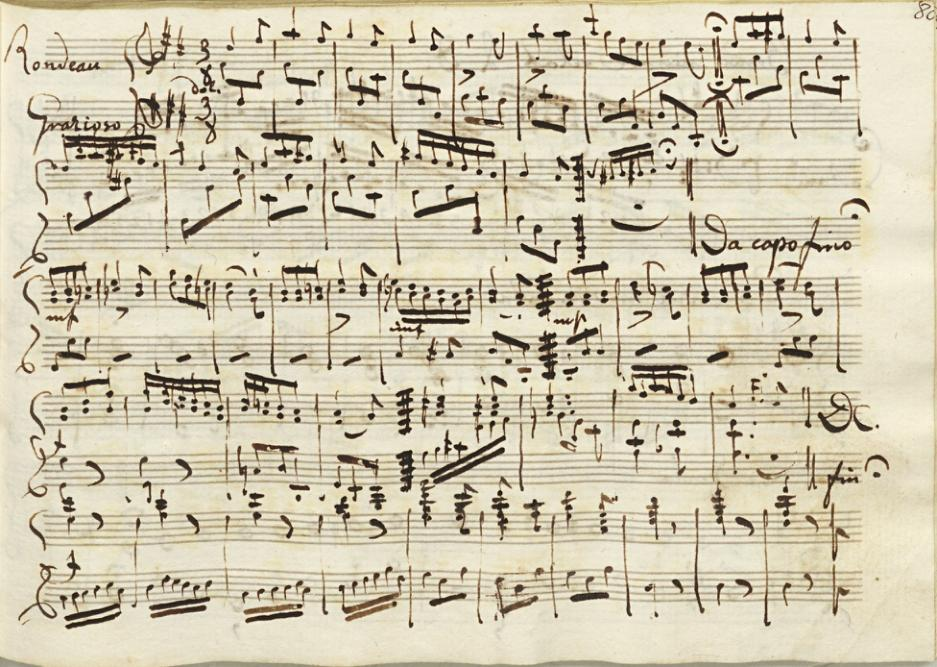 80
Rondeau
dol.
Grazioso
3
8
3
8
Da capo fino
mf
mf
mf
DC.
fin